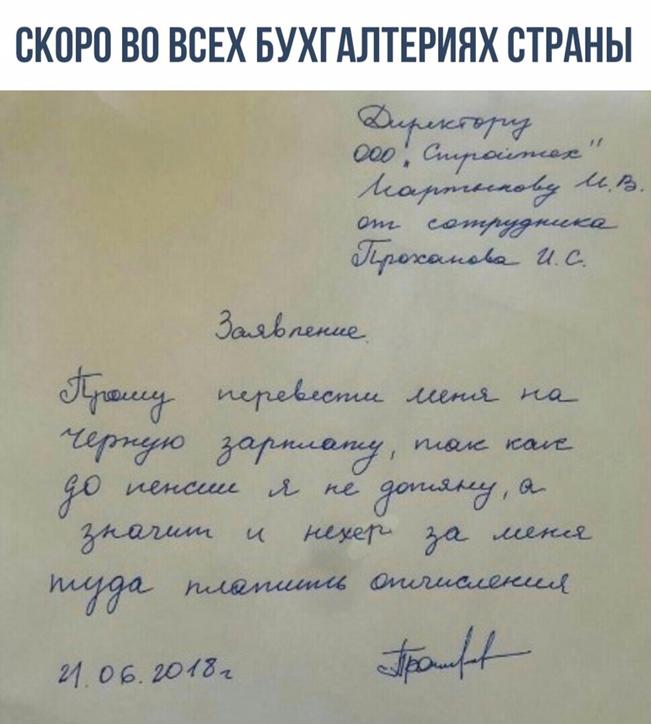 СКОРО ВО ВСЕХ БУХГАЛТЕРИЯХ СТРАНЫ
Директору
ООО „Стройтех"
Мартынову М.В.
от сотрудника
Проханова И.С.
Заявление.
Прошу перевести меня на
черную зарплату, так как
до пенсии я не дотяну, а
значит и нехер за меня
туда платить отчисления
21.06.2018г